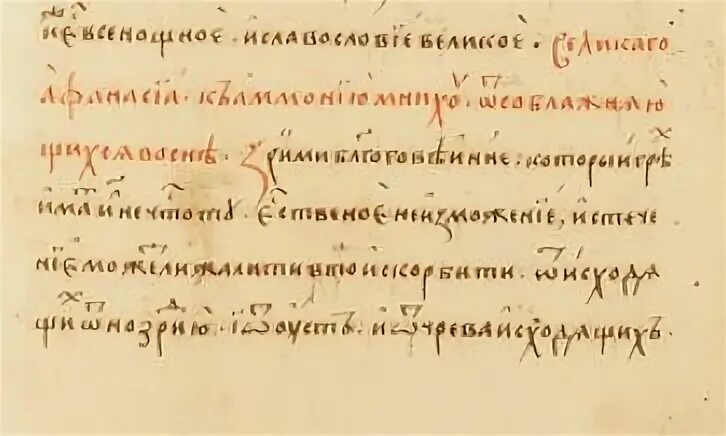 же всенощное · и славословїе великое · Великаго
аѳанасїа · къ аммонїю мнихꙋ · ѿ соблажнѧю
щихсѧ во снѣ · Зри ми бл҃гоговѣинне · которыи грѣх
има и нечⷭ҇тотꙋ · єс҃твеное неизможенїе, и истече
нїе може ли жалити въ тѡ и скорбити · ѿ исходѧ
щиⷯ ѿ ноздрїю · ї ѿ оустъ · и ѿ чрева исходѧщихъ ·